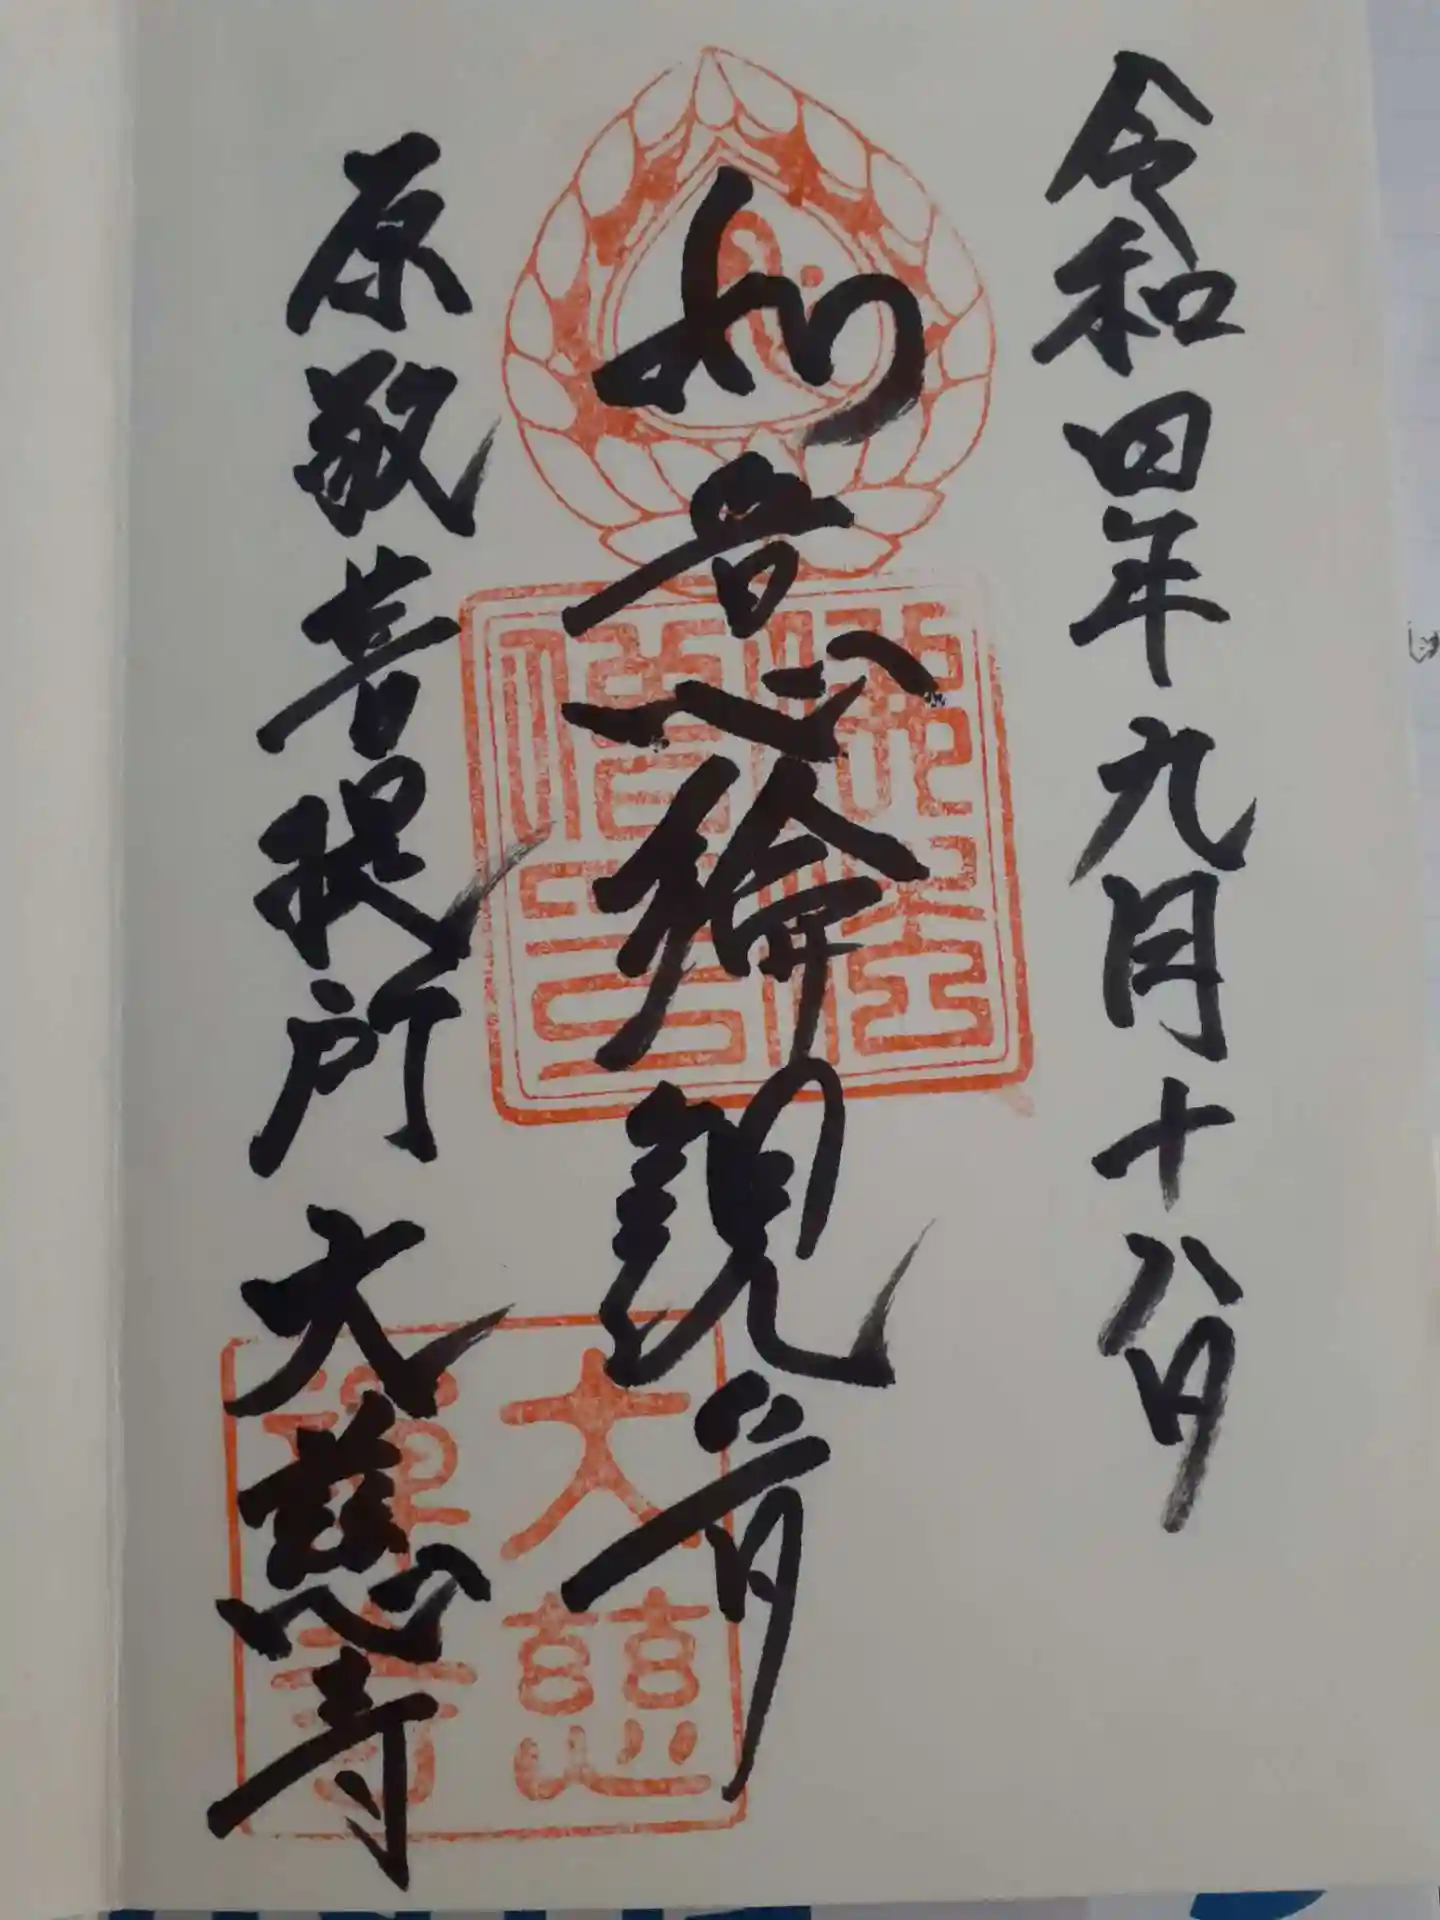 令和四年九月十八日
如意輪観音
原敬菩提所 大慈寺
大慈
禅寺